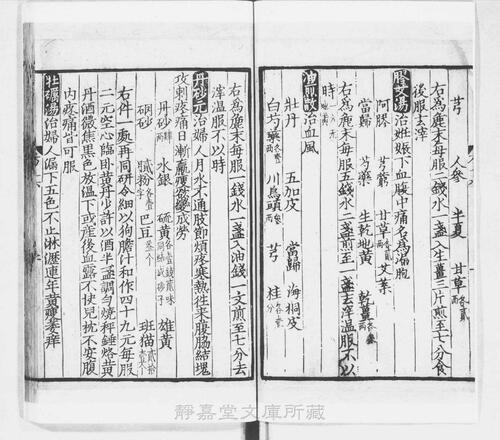 芎　人參　半夏　甘草各貳兩
右為麁末每服二錢水一盞入生薑三片煎至七分食
後服去滓
膠艾湯治姙娠下血腹中痛名為漏胞
阿膠　芎藭　甘草各貳兩　艾葉
當歸　芍藥　生乾地黃　乾薑
右為麁末每服五錢水二盞煎至一盞去滓溫服不以
時
油煎散治血風
牡丹　五加皮　當歸　海桐皮
白芍藥　川烏頭　芎　桂
右為麁末每服一錢水一盞入油錢一文煎至七分去
滓溫服不以時
丹砂元治婦人月水不通肢節煩疼寒熱往來腹脇結塊
攻刺疼痛日漸羸瘦變成勞
丹砂　水銀　硫黃　雄黃
硇砂　膩粉　巴豆　班猫
右件一處再同研令細以狗膽汁和作四十九元每服
二元空心臨臥黃丹少許以酒半盞調勻燒秤錘烙黃
丹酒微焦黑色放溫下或產後血露不快兒枕不安腹
內疼痛皆可服
牡礪湯治婦人漏下五色不止淋瀝連年黃瘦萎瘁
靜嘉堂文庫所藏